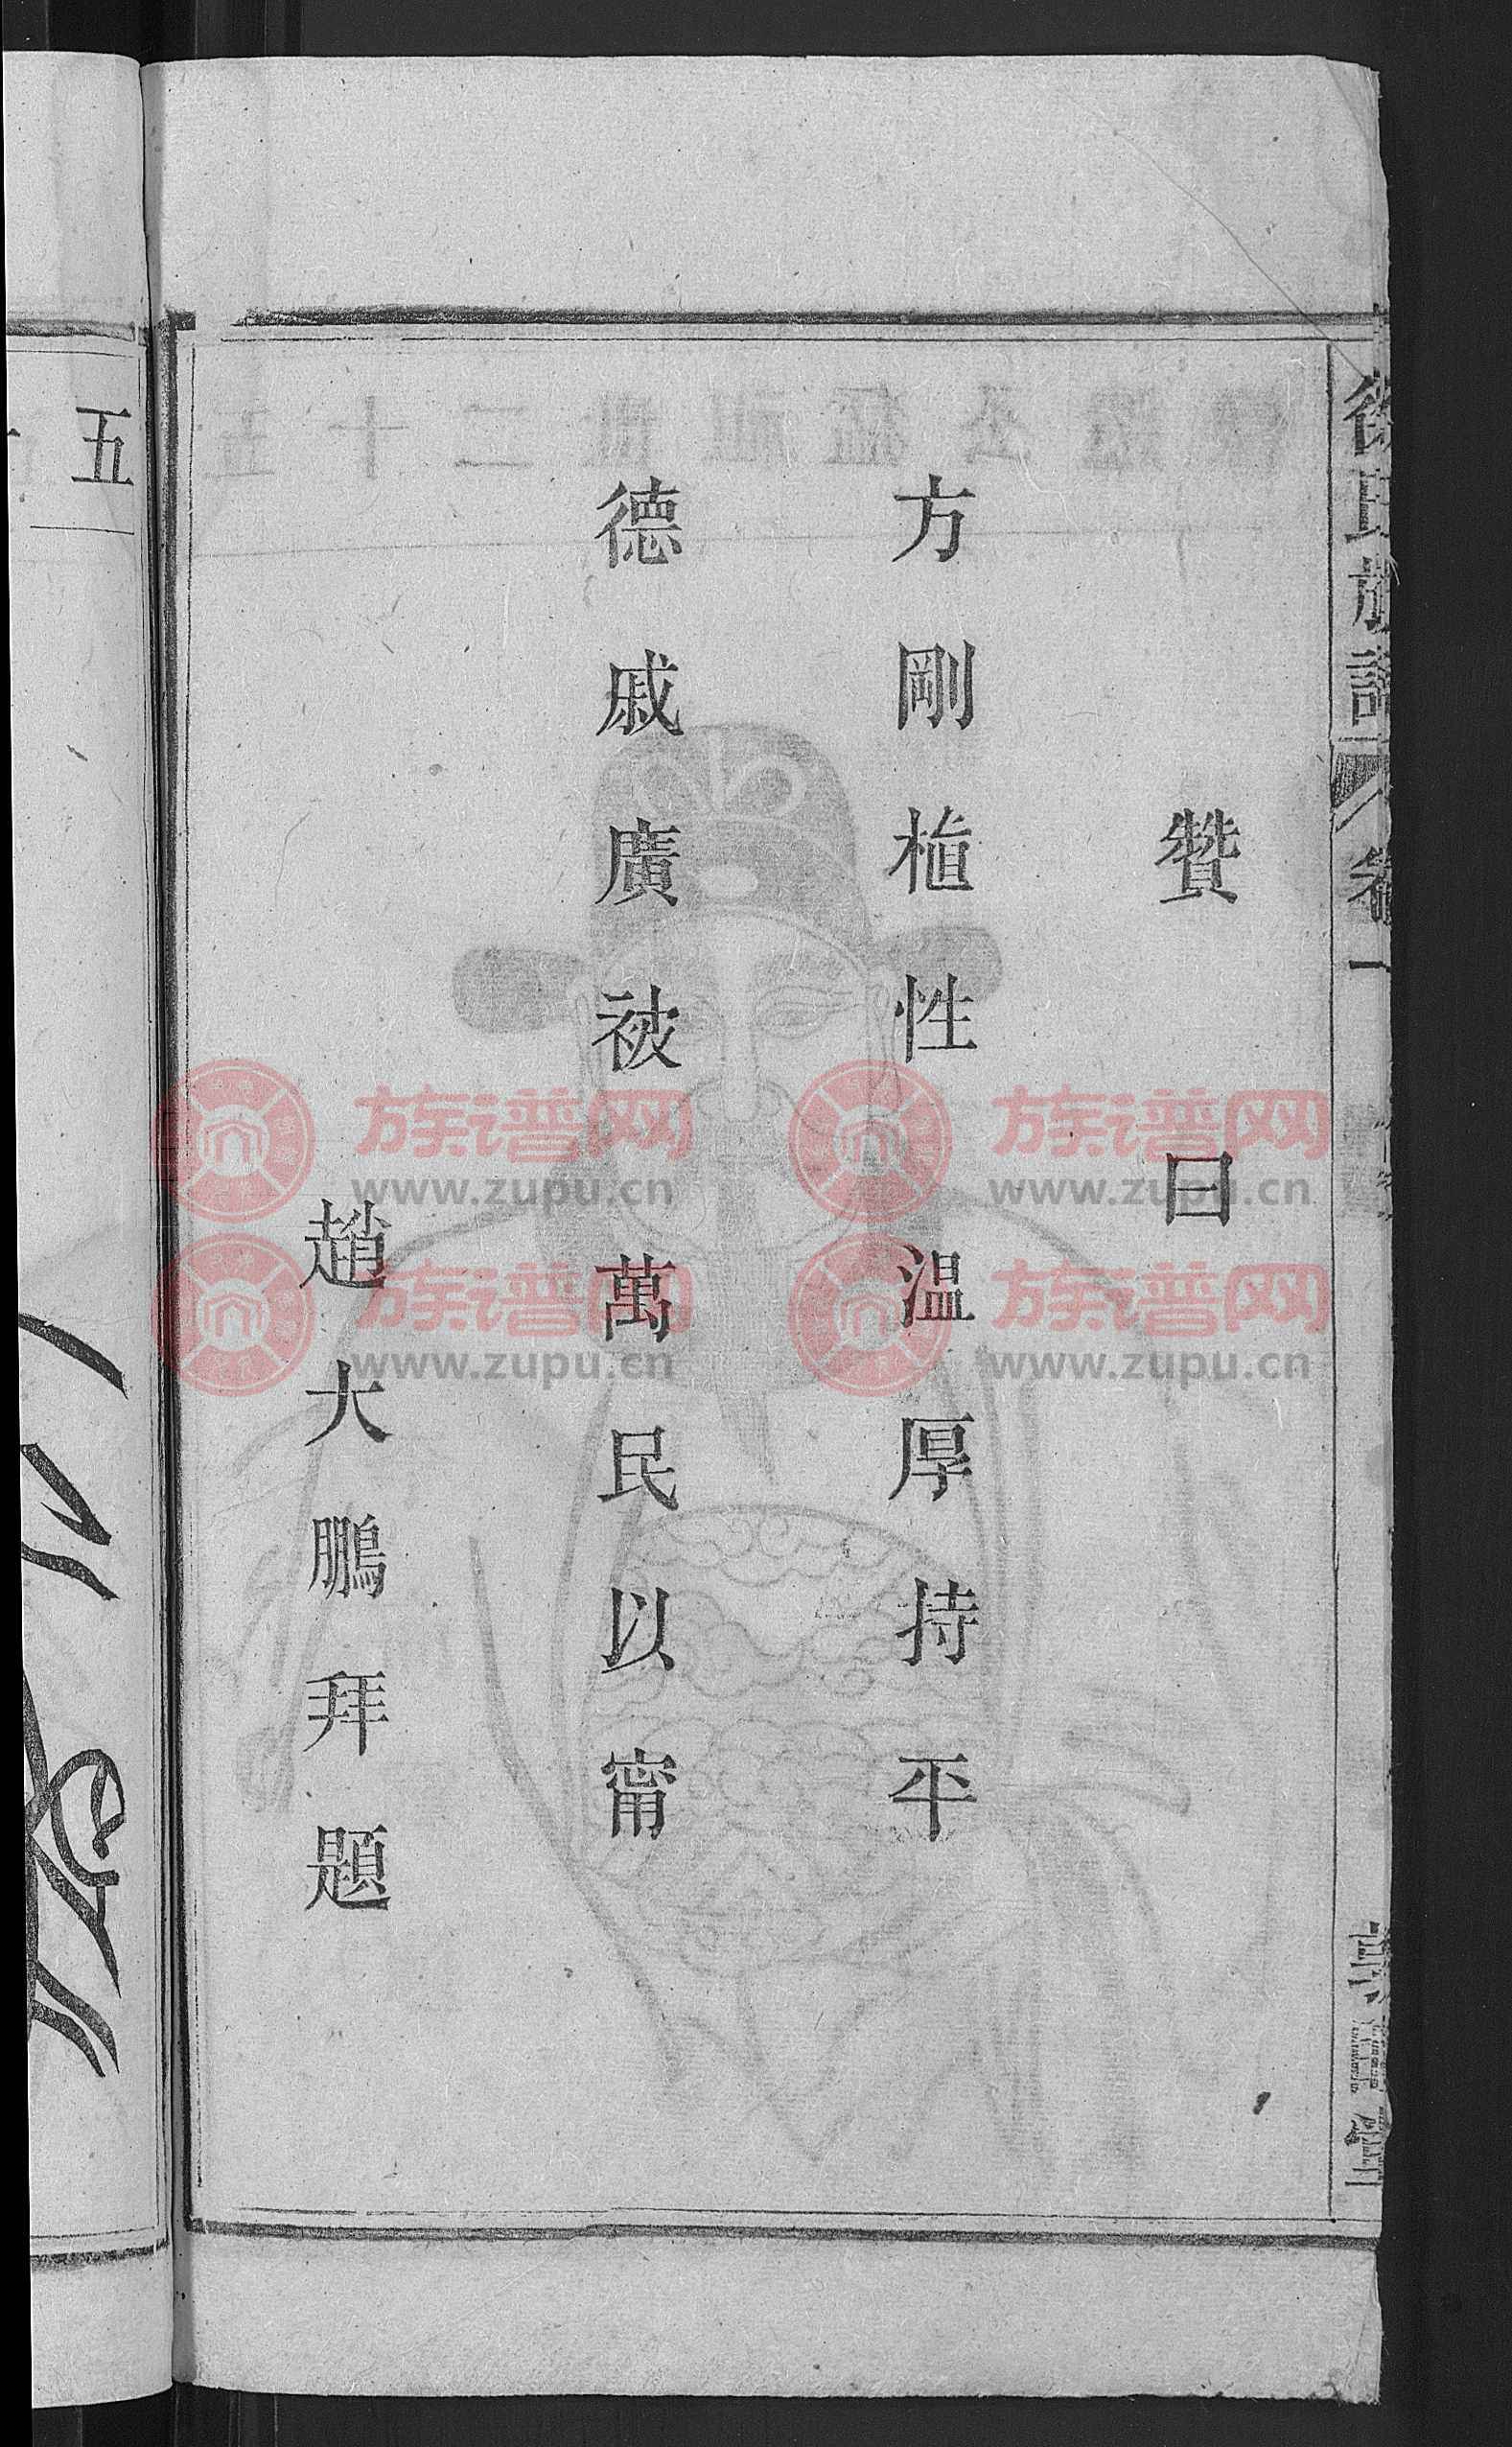 贊曰
方剛植性溫厚持平
德威廣被萬民以甯
趙大鵬拜題
徐氏族譜
卷一
五
族谱网
www.zupu.cn
族谱网
www.zupu.cn
族谱网
www.zupu.cn
族谱网
www.zupu.cn